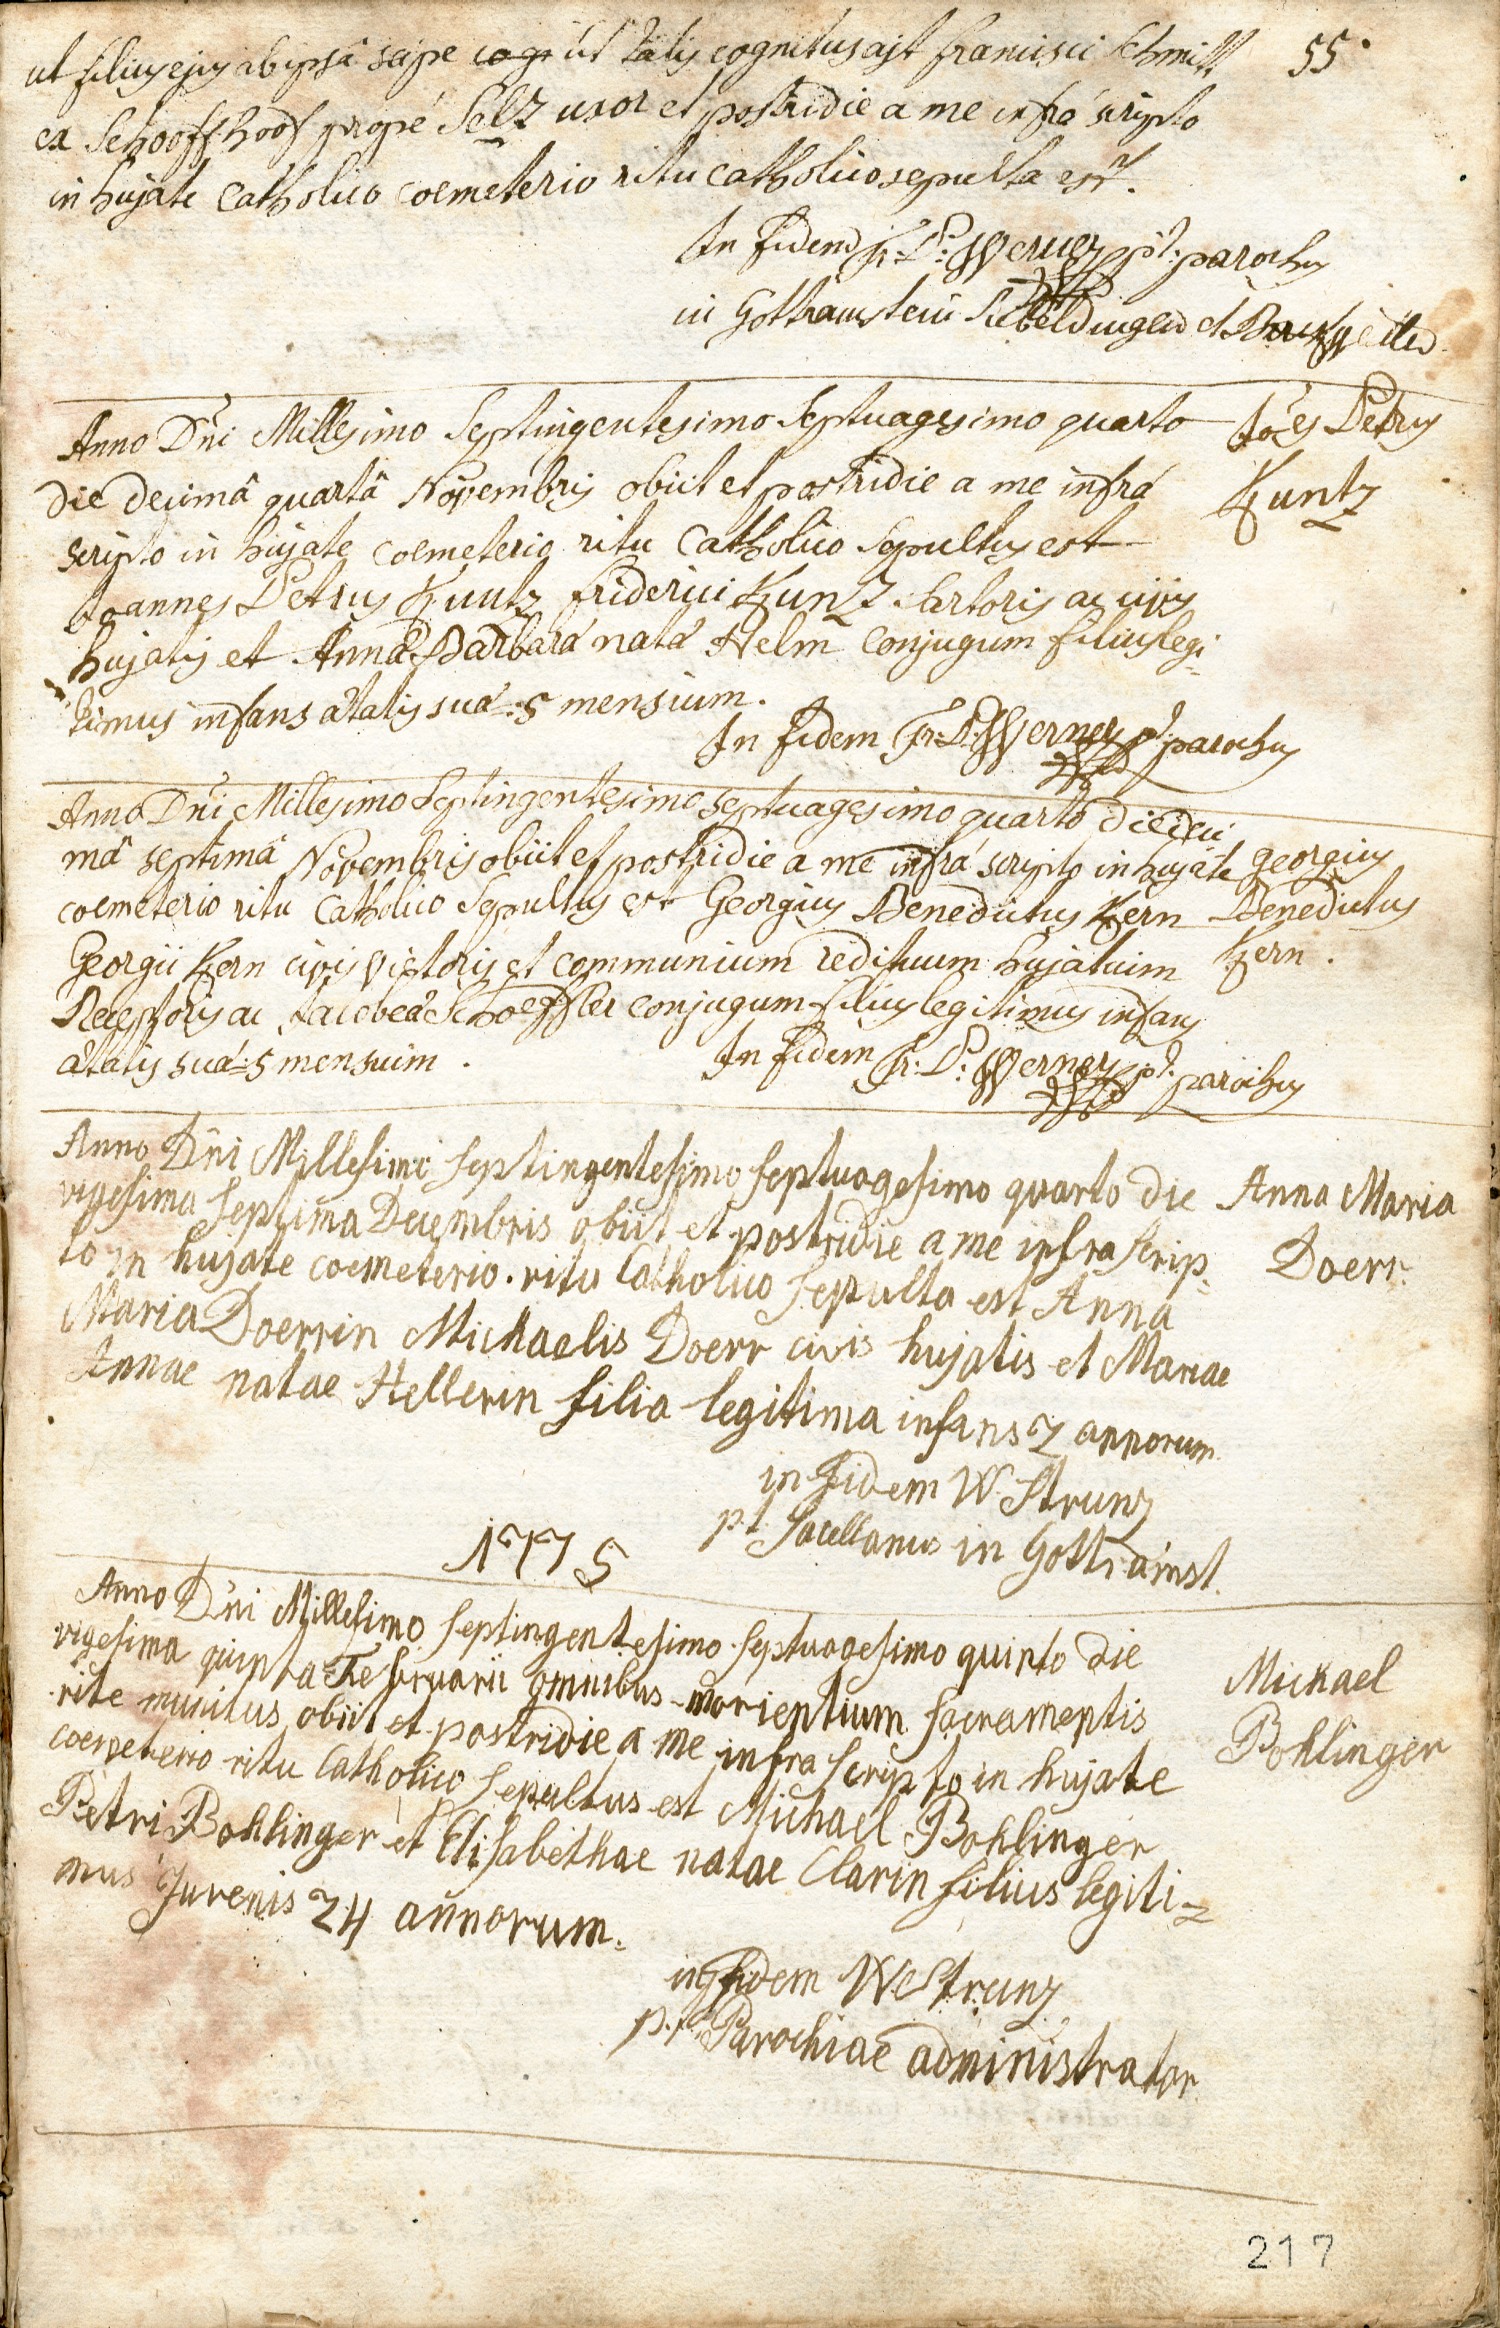 55.
ut filius ejus ab ipsâ sæpe cog ut talis cognitus ast Francisci Schmitt
ex Schooffhoof propé Selz uxor et postridie a me infrá scripto
in hujate Catholico coemeterio ritu catholico sepulta est.
In fidem Fr: P: Werner pt: parochus
in Gottramstein Siebeldingen et Burgweiler
Anno Dni Millesimo Septingentesimo Septuagesimo quarto
Joes Petrus
die decimâ quartâ Novembris obiit et postridie a me infrá
Kuntz
scripto in hujate coemeterio ritu Catholico Sepultus est
Joannes Petrus Kuntz friderici Kuntz Sartoris ac civis
hujatis et Annâ Barbará natá Helm conjugum filius legi-
timus infans ætatis suæ 5 mensium.
In fidem Fr: P: Werner pt: parochus
Anno Dni Millesimo Septingentesimo septuagesimo quarto die deci
mâ septimâ Novembris obiit et postridie a me infrá scripto in hujate
Georgius
coemeterio ritu Catholico Sepultus est Georgius Benedictus Kern
Benedictus
Georgii Kern civis victoris et communium redituum hujatium
Kern.
Receptoris ac Jacobeæ Schoeffler conjugum filius legitimus infans
ætatis suæ 5 mensium.
In fidem Fr: P: Werner pt: parochus
Anno Dni Millesimo Septingentesimo septuagesimo quarto die
Anna Maria
vigesima septima Decembris obiit et postridie a me infra scrip-
Doerr.
to in hujate coemeterio ritu Catholico sepulta est Anna
Maria Doerrin Michaelis Doerr civis hujatis et Mariae
Annae natae Hellerin filia legitima infans 2 annorum.
in Fidem W. Strunz
p.t. Sacellanus in Gottramst.
1775
Anno Dni Millesimo Septingentesimo Septuagesimo quinto die
vigesima quinta Februarii omnibus morientium sacramentis
Michael
rite munitus obiit et postridie a me infra scripto in hujate
Bohlinger
coemeterio ritu Catholico sepultus est Michael Bohlinger
Petri Bohlinger et Elisabethae natae Clarin filius legiti-
mus Juvenis 24 annorum.
in Fidem W. Strunz
p.t. Parochiae administrator
217